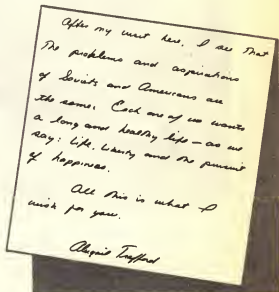 After my visit here, I see that
the problems and aspirations
of Soviets and Americans are
the same. Each one of us wants
a long and healthy life – as we
say: life, liberty and the pursuit
of happiness.
All this is what I
wish for you.
Abigail Trafford